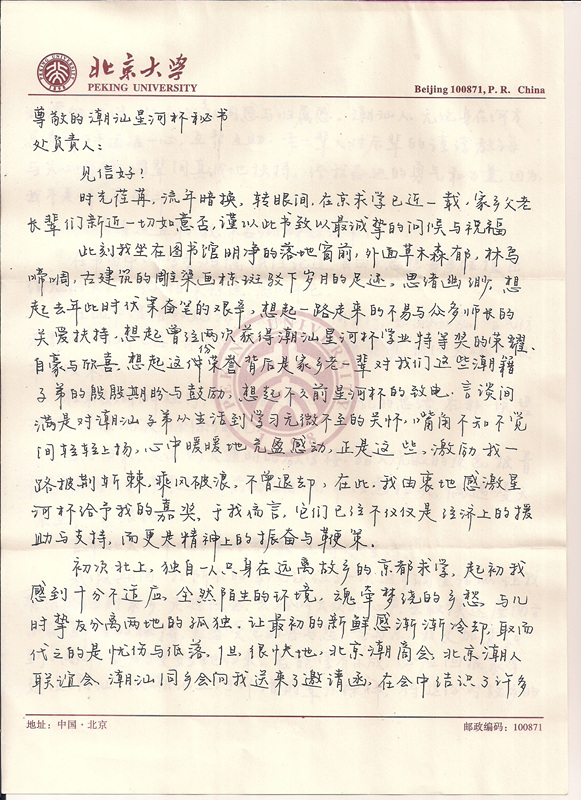 北京大学
PEKING UNIVERSITY
Beijing 100871, P. R. China
尊敬的潮汕星河杯秘书
处负责人：
见信好！
时光荏苒，流年暗换，转眼间，在京求学已近一载，家乡父老
长辈们新近一切如意否，谨以此书致以最诚挚的问候与祝福
此刻我坐在图书馆明净的落地窗前，外面草木森郁，林鸟
啼啁，古建筑的雕梁画栋斑驳下岁月的足迹，思绪幽渺，想
起去年此时伏案奋笔的艰辛，想起一路走来的不易与众多师长的
关爱扶持，想起曾经两次获得潮汕星河杯学业特等奖的荣耀、
自豪与欣喜，想起这份荣誉背后是家乡老一辈对我们这些潮籍
子弟的殷殷期盼与鼓励，想起不久前星河杯的致电，言谈间
满是对潮汕子弟从生活到学习无微不至的关怀，嘴角不知不觉
间轻轻上扬，心中暖暖地充盈感动，正是这些，激励我一
路披荆斩棘，乘风破浪，不曾退却，在此，我由衷地感激星
河杯给予我的嘉奖，于我而言，它们已经不仅仅是经济上的援
助与支持，而更是精神上的振奋与鞭策.
初次北上，独自一人只身在远离故乡的京都求学，起初我
感到十分不适应，全然陌生的环境，魂牵梦绕的乡愁，与儿
时挚友分离两地的孤独，让最初的新鲜感渐渐冷却，取而
代之的是忧伤与低落，但，很快地，北京潮商会、北京潮人
联谊会、潮汕同乡会向我送来了邀请函，在会中结识了许多
地址：中国·北京
邮政编码：100871